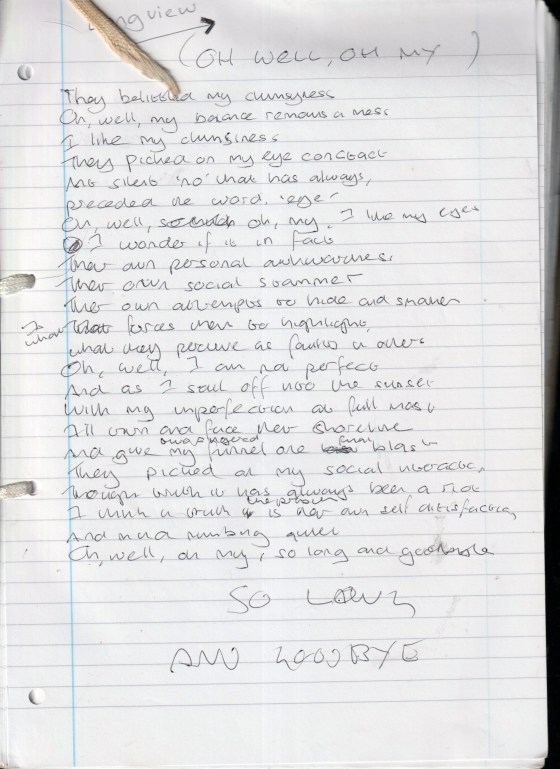 longview
(OH WELL, OH MY )
They belittled my clumsyness
Oh, well, my balance remains a mess
I like my clumsiness
They picked on my eye contact
the silent 'no' that has always,
preceded the word, 'eye'
Oh, well, oh, my, I like my eyes
I wonder if it is in fact
Their own personal awkwardness
Their own social stammer
Their own attempts to hide and smaller
I what
that forces them to highlight,
what they perceive as faults in others
Oh, well, I am not perfect
And as I sail off into the sunset
With my imperfection at full mast
I'll turn and face their shoreline
And give my funnel one final blast
They picked on my social interaction
though which it has always been a riot
I think is their own self dissatisfaction,
And mind numbing quiet
Oh, well, oh my, so long and goodbye
SO LONG
AND GOODBYE